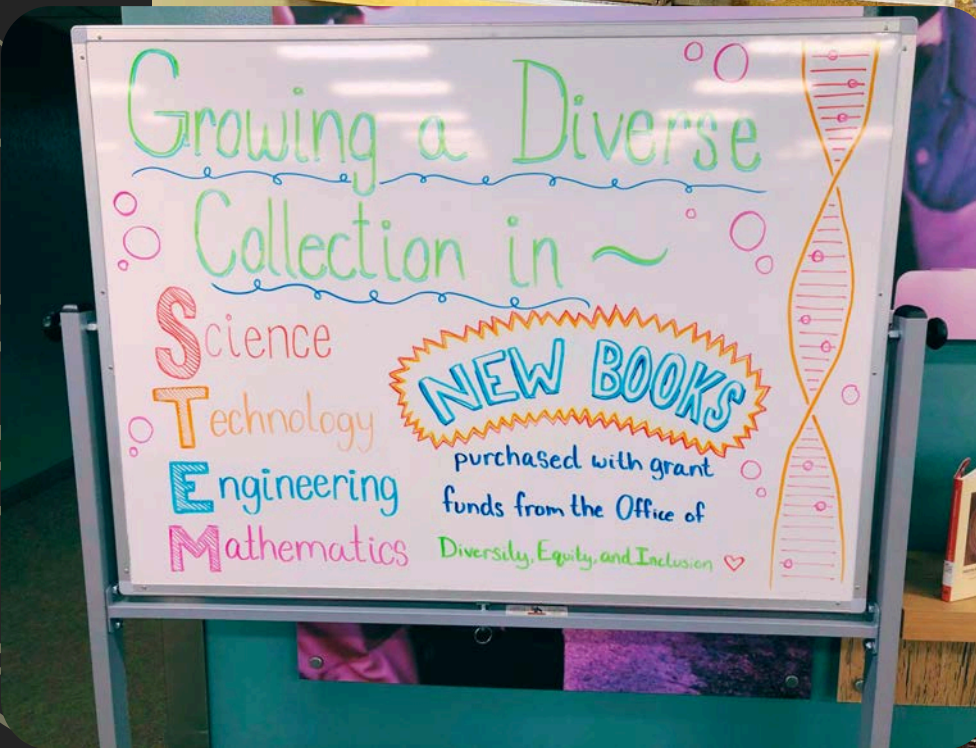 Growing a Diverse
Collection in ~
Science
Technology
Engineering
Mathematics
NEW BOOKS
purchased with grant
funds from the Office of
Diversity, Equity, and Inclusion ♡